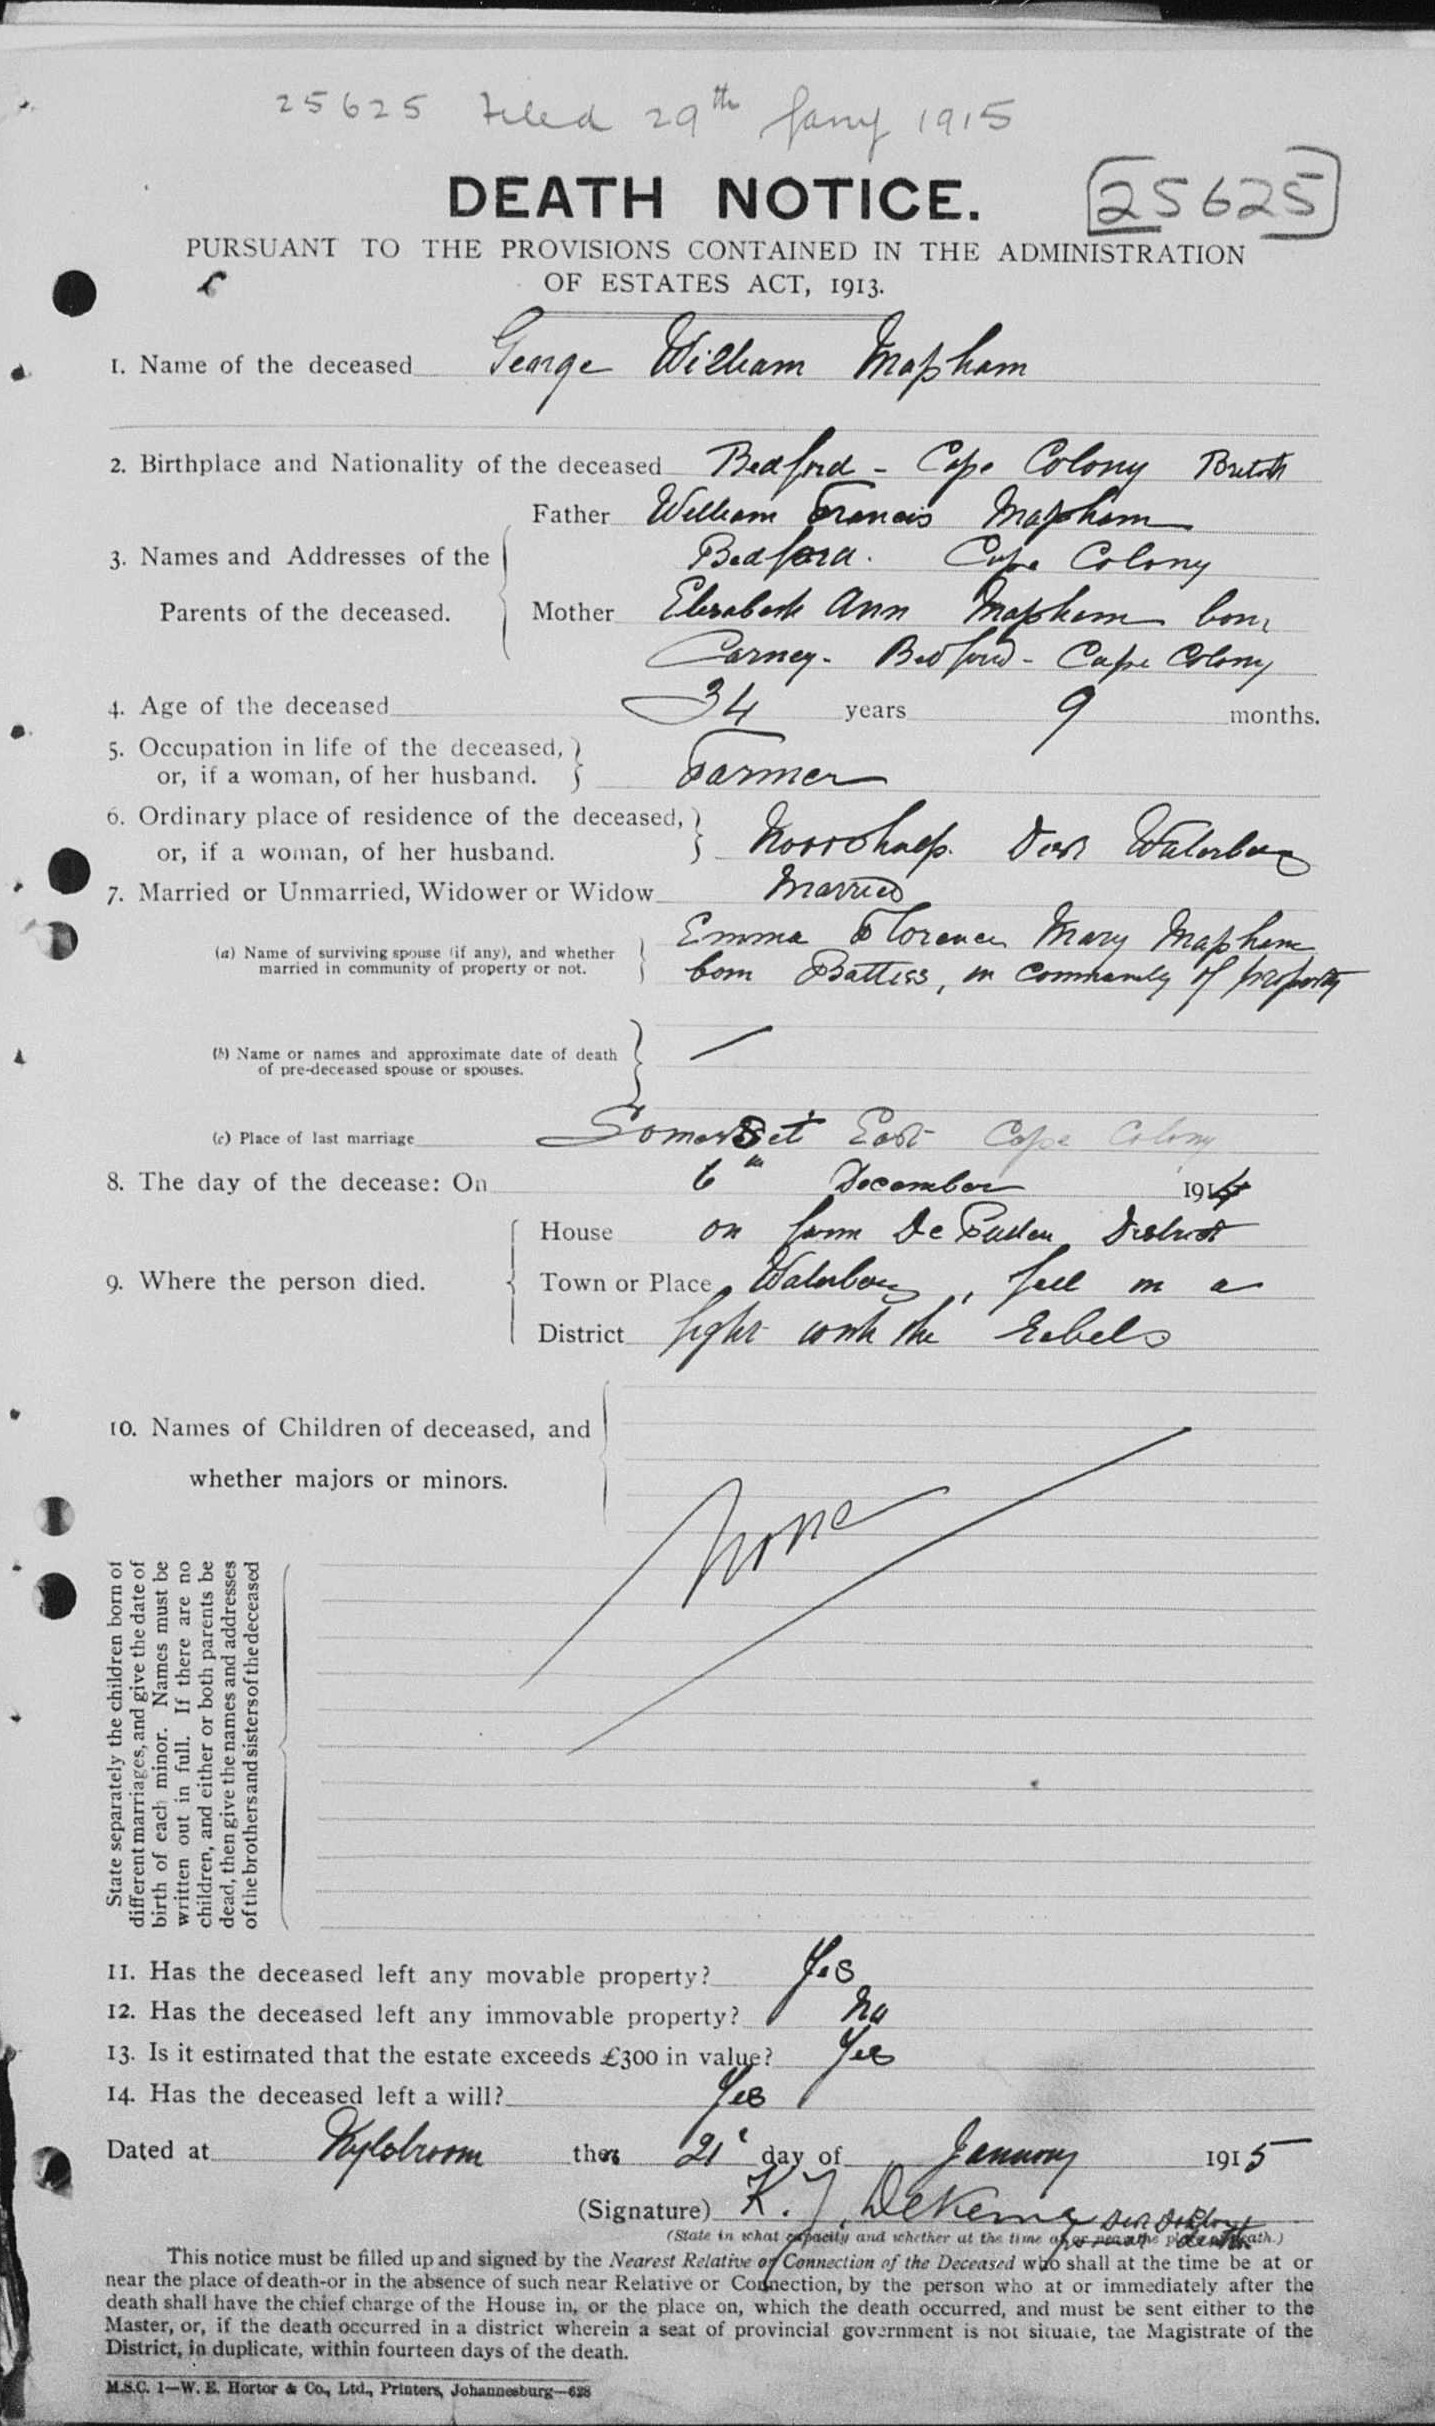 25625 Filed 29th Jany 1915
DEATH NOTICE.
25625
PURSUANT TO THE PROVISIONS CONTAINED IN THE ADMINISTRATION
OF ESTATES ACT, 1913.
1. Name of the deceased George William Mapham
2. Birthplace and Nationality of the deceased Bedford - Cape Colony British
3. Names and Addresses of the Parents of the deceased.
Father William Francis Mapham
Bedford. Cape Colony
Mother Elizabeth Ann Mapham born
Carney - Bedford - Cape Colony
4. Age of the deceased 34 years 9 months.
5. Occupation in life of the deceased,
or, if a woman, of her husband. Farmer
6. Ordinary place of residence of the deceased,
or, if a woman, of her husband. Dist Waterberg
7. Married or Unmarried, Widower or Widow Married
(a) Name of surviving spouse (if any), and whether
married in community of property or not.
Emma Florence Mary Mapham
born Battiss, in community of property
(b) Name or names and approximate date of death
of pre-deceased spouse or spouses. —
(c) Place of last marriage Somerset East Cape Colony
8. The day of the decease: On 6th December 1914
9. Where the person died.
House on farm De Putten District
Town or Place Waterberg, fell in a
District fight with the Rebels
10. Names of Children of deceased, and
whether majors or minors.
None
State separately the children born of
different marriages, and give the date of
birth of each minor. Names must be
written out in full. If there are no
children, and either or both parents be
dead, then give the names and addresses
of the brothers and sisters of the deceased
11. Has the deceased left any movable property? Yes
12. Has the deceased left any immovable property? No
13. Is it estimated that the estate exceeds £300 in value? Yes
14. Has the deceased left a will? Yes
Dated at Nylstroom the 21 day of January 1915
(Signature) K. J.
(State in what capacity and whether at the time at or near the place of death.)
This notice must be filled up and signed by the Nearest Relative or Connection of the Deceased who shall at the time be at or
near the place of death-or in the absence of such near Relative or Connection, by the person who at or immediately after the
death shall have the chief charge of the House in, or the place on, which the death occurred, and must be sent either to the
Master, or, if the death occurred in a district wherein a seat of provincial government is not situate, the Magistrate of the
District, in duplicate, within fourteen days of the death.
M.S.C. 1—W. E. Hortor & Co., Ltd., Printers, Johannesburg—628